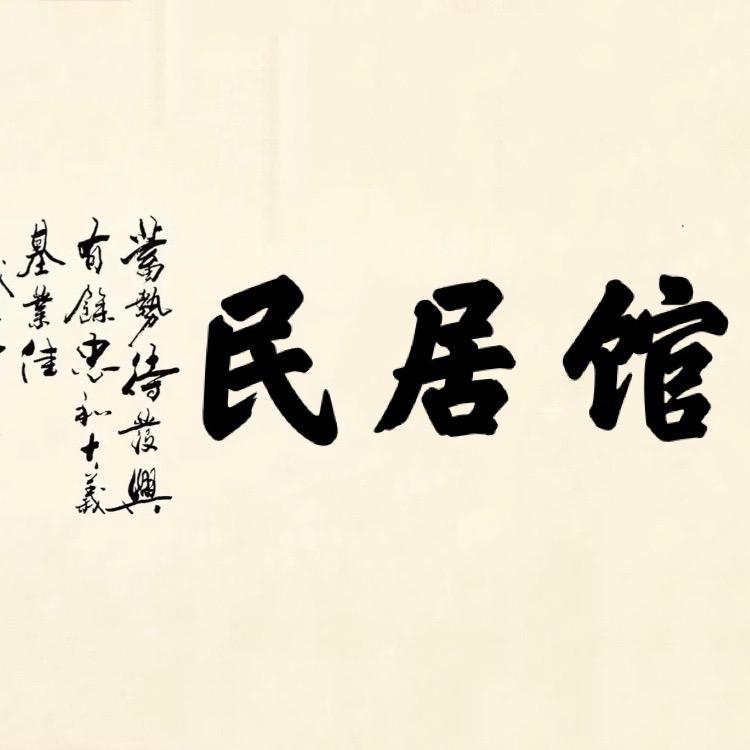 民居馆
蓄勢待發興
有餘忠和十義
基業佳